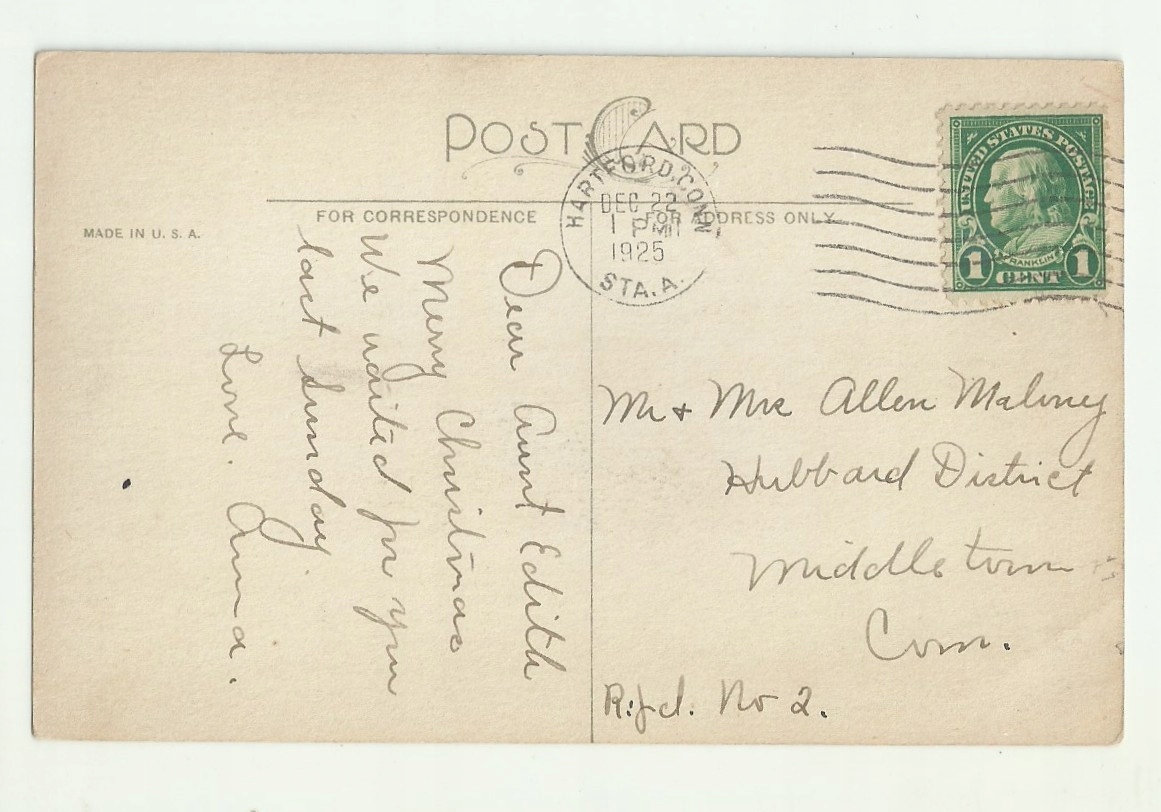 POST CARD
FOR CORRESPONDENCE
FOR ADDRESS ONLY
MADE IN U. S. A.
HARTFORD, CONN.
DEC 22
1 PM
1925
STA. A.
UNITED STATES POSTAGE
FRANKLIN
1 CENT 1
Dear Aunt Edith
Merry Christmas
We waited for you
last Sunday.
Love. Anna.
Mr + Mrs Allen Maloney
Hubbard District
Middletown
Conn.
R.f.d. No 2.